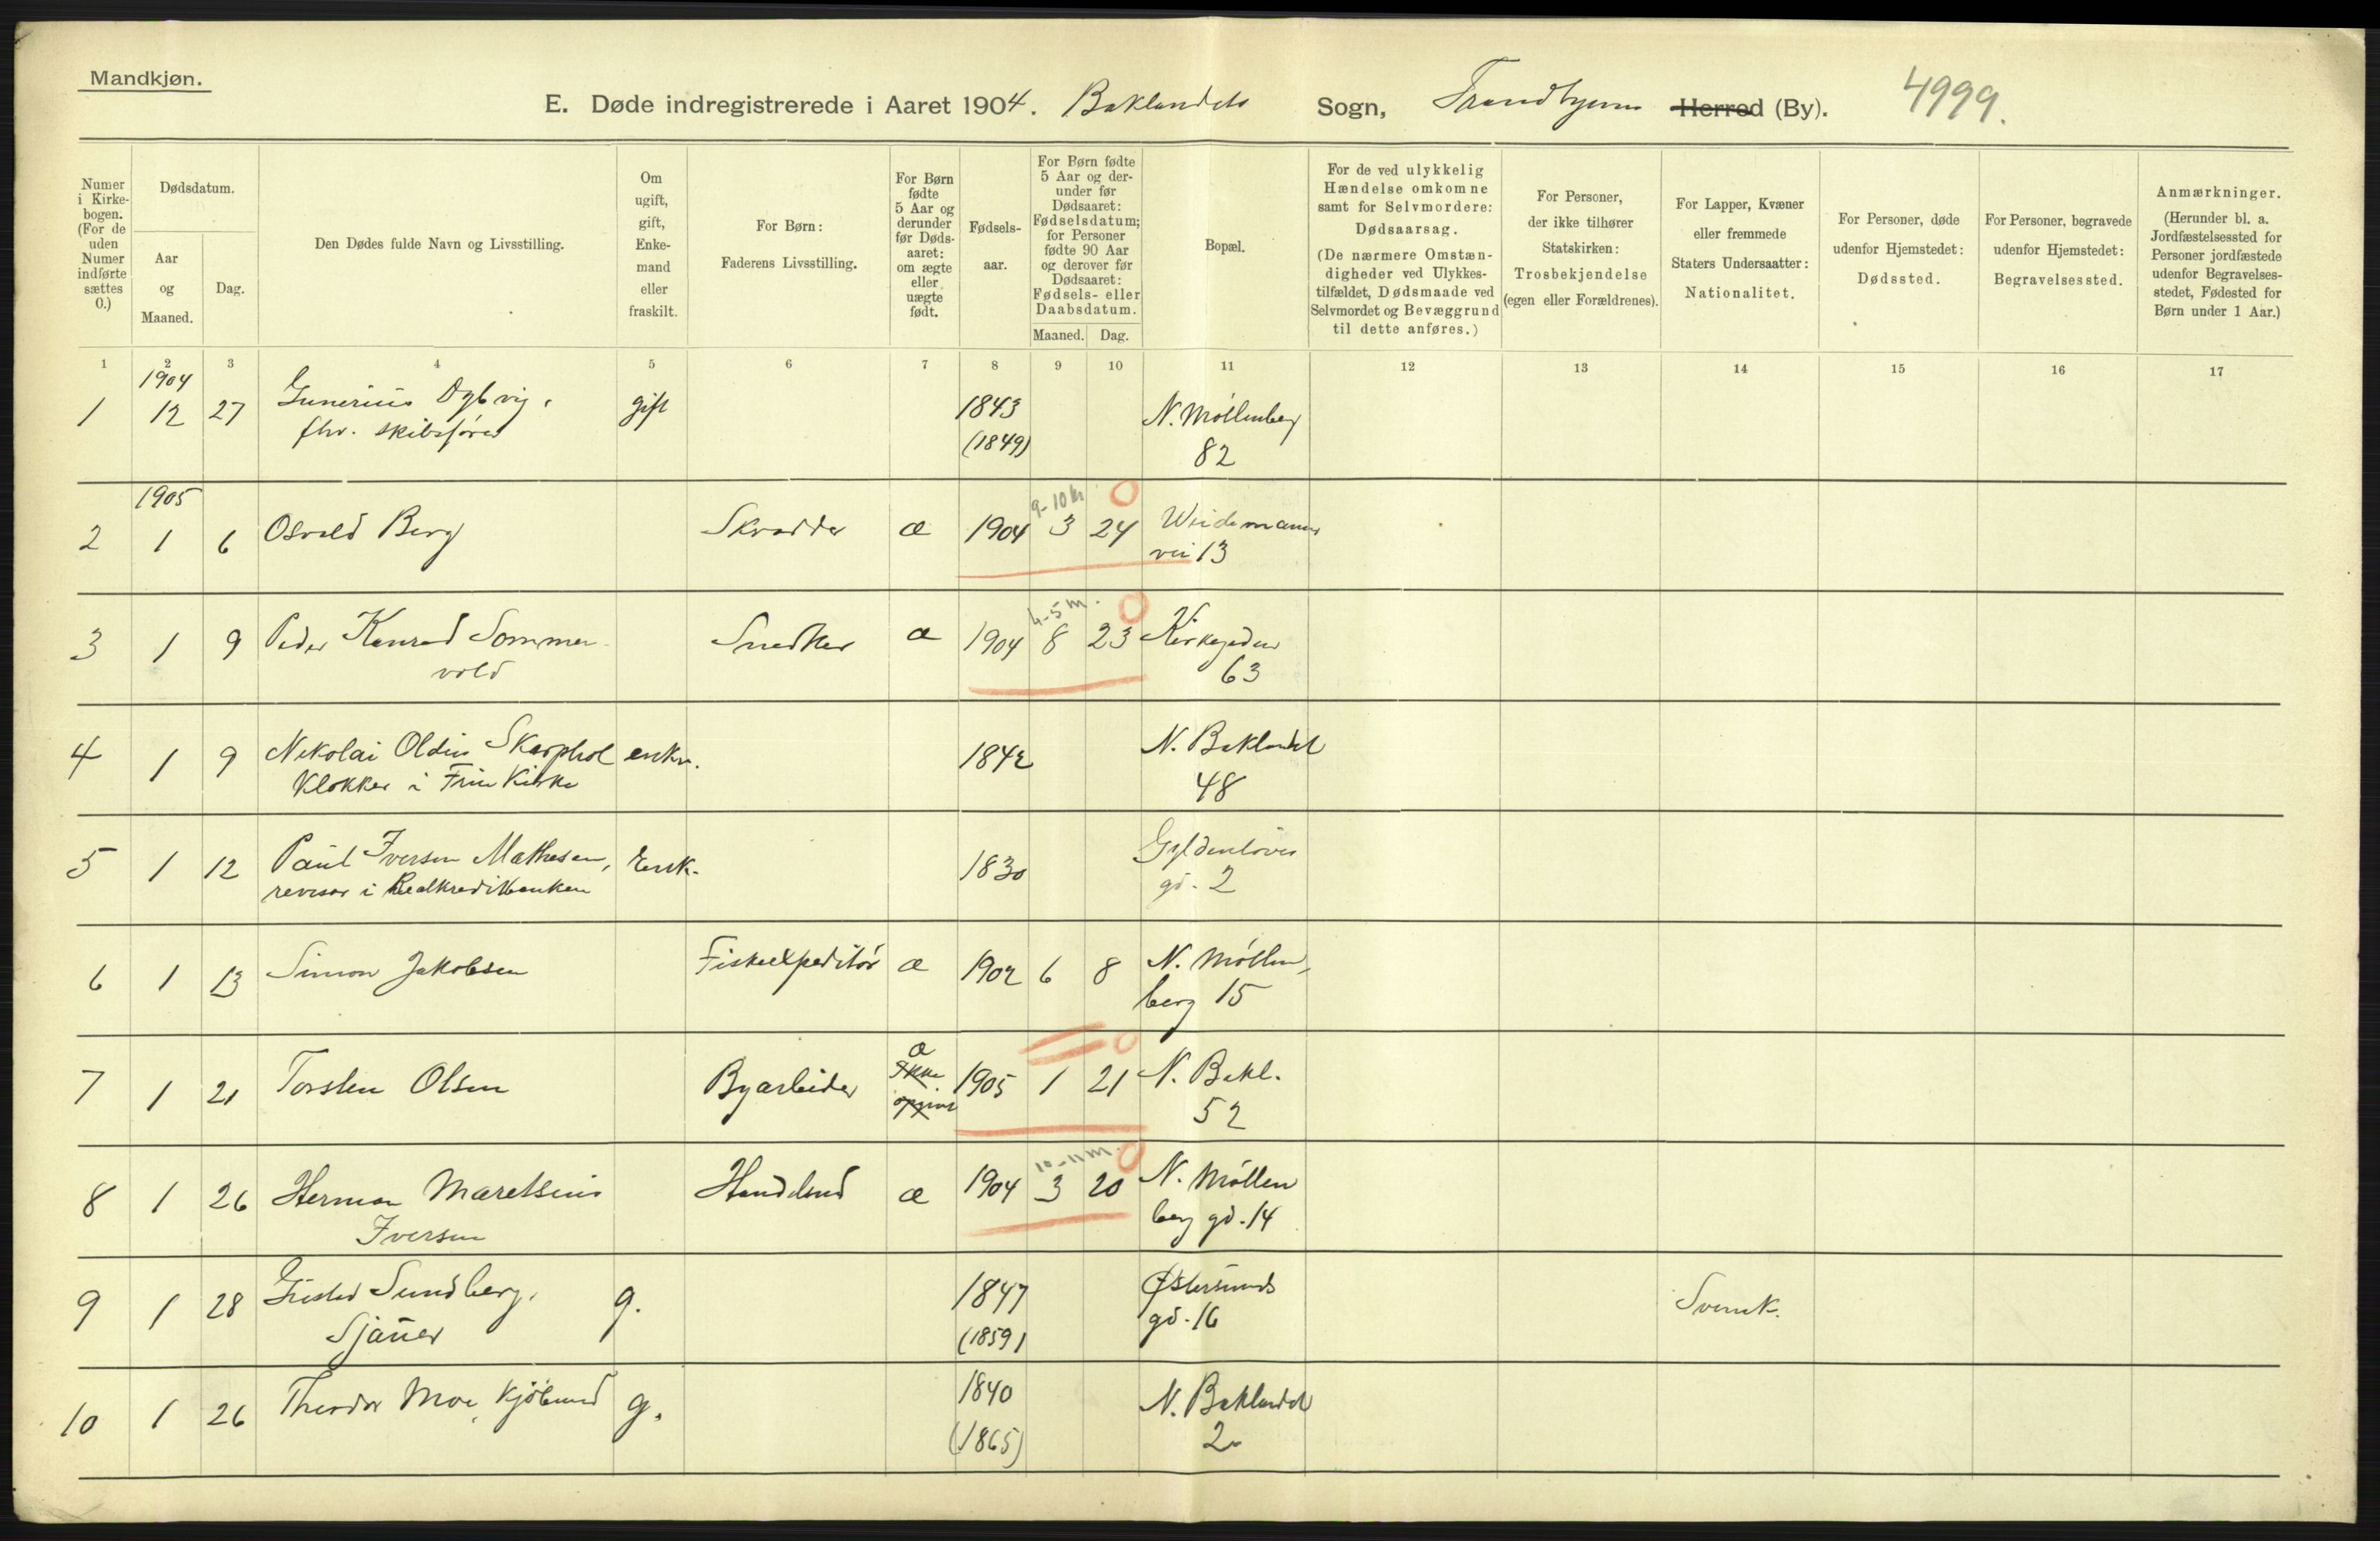 Mandkjøn.
E. Døde indregistrerede i Aaret 1904. Baklandets Sogn, Trondhjems Herred (By). 4999.
Numer i Kirke-bogen. (For de uden Numer indførte sættes 0.)
Dødsdatum.
Aar og Maaned.
Dag.
Den Dødes fulde Navn og Livsstilling.
Om ugift, gift, Enke-mand eller fraskilt.
For Børn: Faderens Livsstilling.
For Børn fødte 5 Aar og derunder før Døds-aaret: om ægte eller uægte født.
Fødsels-aar.
For Børn fødte 5 Aar og der-under før Dødsaaret: Fødselsdatum; for Personer fødte 90 Aar og derover før Dødsaaret: Fødsels- eller Daabsdatum.
Maaned. Dag.
Bopæl.
For de ved ulykkelig Hændelse omkomne samt for Selvmordere: Dødsaarsag. (De nærmere Omstæn-digheder ved Ulykkes-tilfældet, Dødsmaade ved Selvmordet og Bevæggrund til dette anføres.)
For Personer, der ikke tilhører Statskirken: Trosbekjendelse (egen eller Forældrenes).
For Lapper, Kvæner eller fremmede Staters Undersaatter: Nationalitet.
For Personer, døde udenfor Hjemstedet: Dødssted.
For Personer, begravede udenfor Hjemstedet: Begravelsessted.
Anmærkninger. (Herunder bl. a. Jordfæstelsessted for Personer jordfæstede udenfor Begravelses-stedet, Fødested for Børn under 1 Aar.)
1 2 3 4 5 6 7 8 9 10 11 12 13 14 15 16 17
1904
1 12 27 Gunerius Dybvig, gift 1843 N. Möllenberg
fhv. skibsfører (1849) 82
1905
9-10 m
2 1 6 Osvald Berg Skrædder æ 1904 3 24 Weidemanns
vei 13
4-5 m.
3 1 9 Peder Konrad Sommer- Snedker æ 1904 8 23 Kirkegaden
vold 63
4 1 9 Nikolai Oldin Skarphol enkm. 1842 N. Baklandet
Klokker i Frue Kirke 48
5 1 12 Paul Iversen Mathesen, Enk. 1830 Gyldenløves
revisor i Realkreditbanken gd. 2
6 1 13 Simon Jakobsen Fiskeexpeditör æ 1902 6 8 N. Möllen-
berg 15
æ
7 1 21 Torsten Olsen Byarbeider Ikke opgivet 1905 1 21 N. Bakl.
52
10-11 m.
8 1 26 Herman Maretsius Handlend æ 1904 3 20 N. Möllen
Iversen berg gd. 14
9 1 28 Sundberg, g. 1847 Østersunds Svensk.
Sjauer (1859) gd. 16
10 1 26 Theodor Moe, Kjöbmand g. 1840 N. Baklandet
(1865) 2